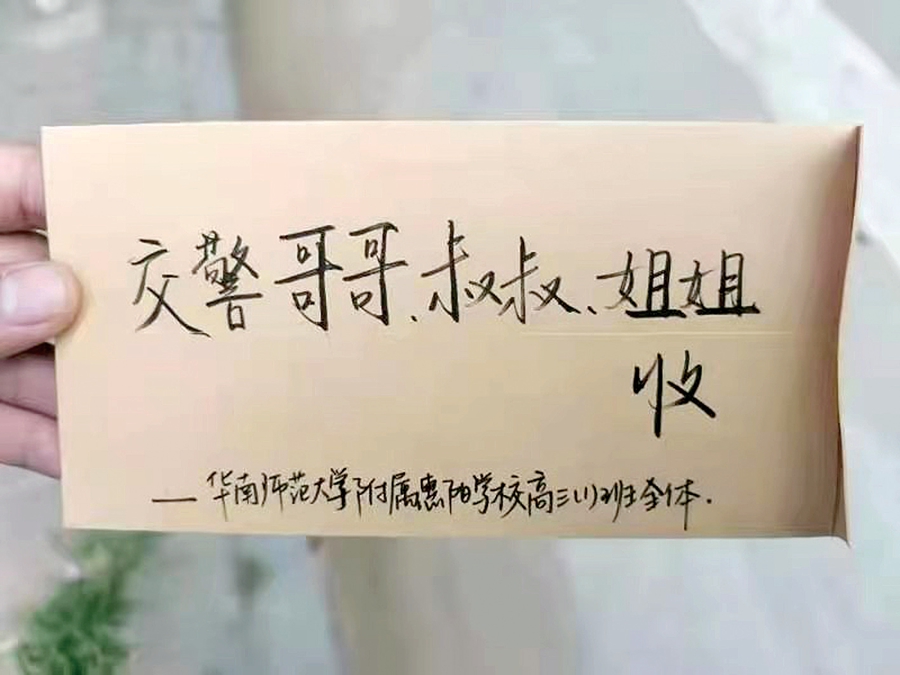 交警哥哥、叔叔、姐姐
收
——华南师范大学附属惠阳学校高三(1)班全体.